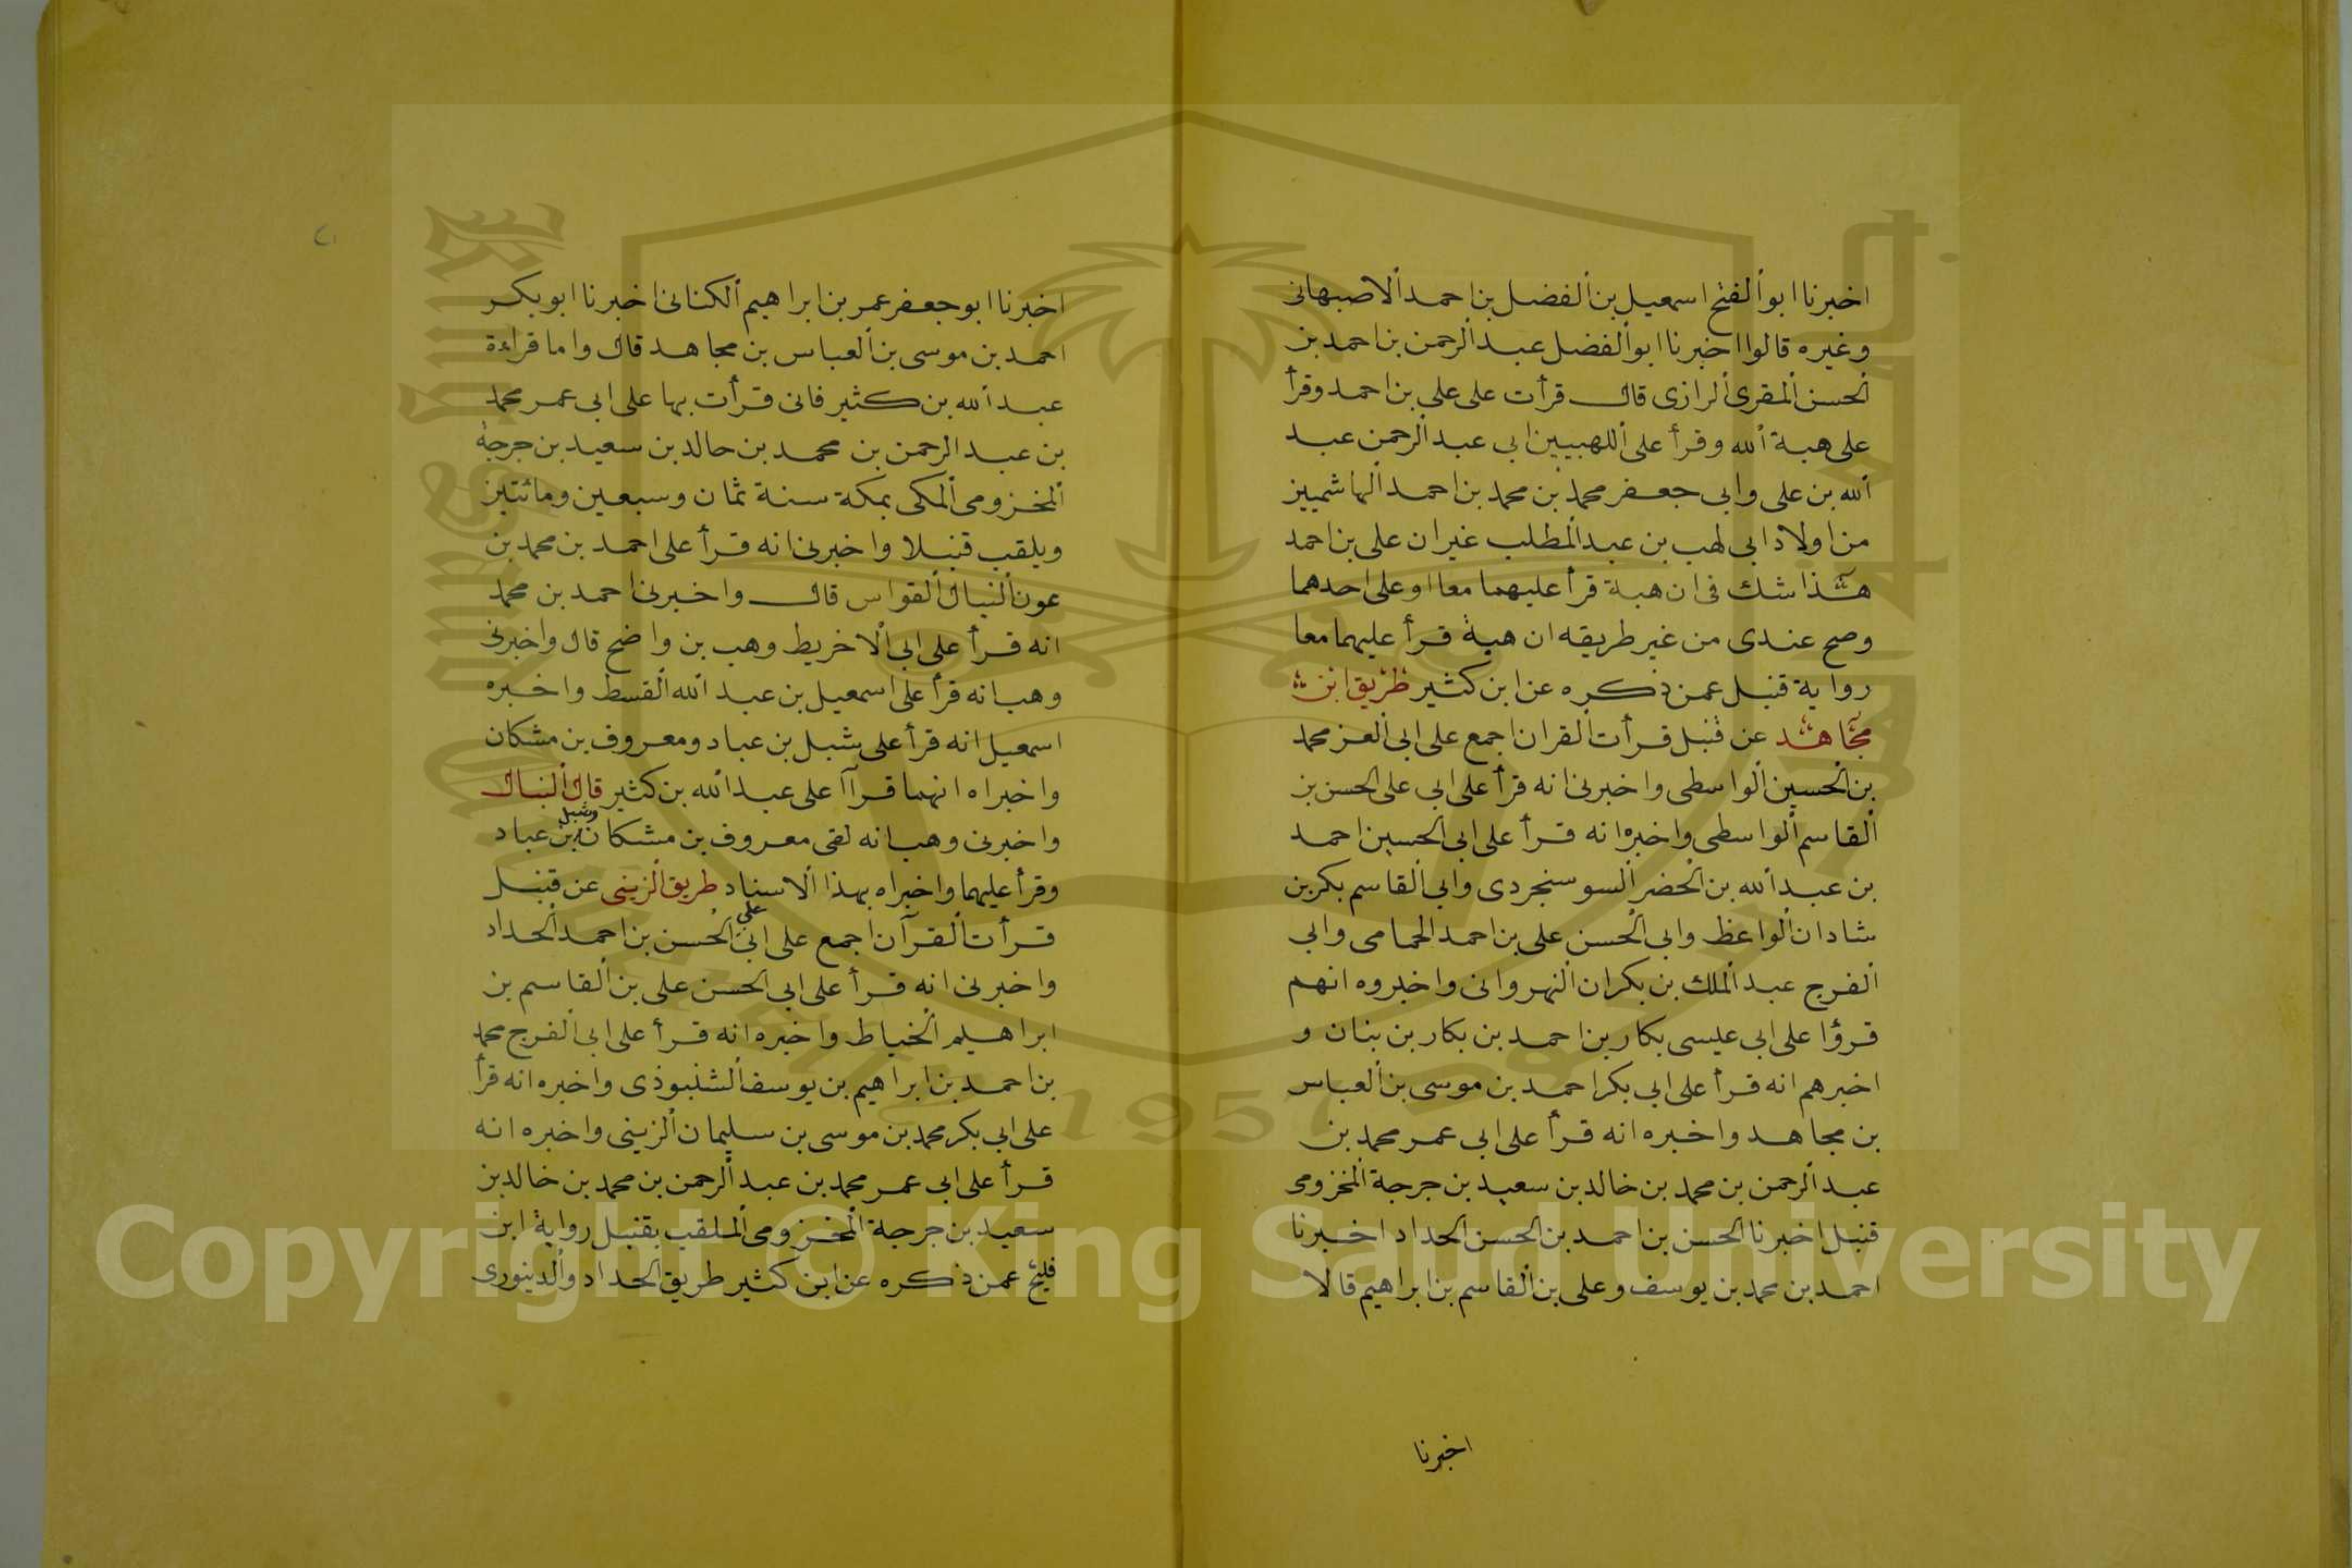 اخبرنا ابو الفتح اسمعيل بن الفضل بن احمد الاصبهانى
وغيره قالوا اخبرنا ابو الفضل عبد الرحمن بن احمد بن
الحسن المقرى الرازى قال قرأت على على بن احمد وقرأ
على هبة الله وقرأ على اللهبيين ابى عبد الرحمن عبد
الله بن على وابى جعفر محمد بن محمد بن احمد الهاشميين
من اولاد ابى لهب بن عبد المطلب غير ان على بن احمد
هذا شك فى ان هبة قرأ عليهما معا او على احدهما
وصح عندى من غير طريقه ان هبة قرأ عليهما معا
رواية قنبل عمن ذكره عن ابن كثير طريق ابن
مجاهد عن قنبل قرأت القران اجمع على ابى العز محمد
بن الحسين الواسطى واخبرنى انه قرأ على ابى على الحسن بن
القاسم الواسطى واخبره انه قرأ على ابى الحسين احمد
بن عبد الله بن الخضر السوسنجردى وابى القاسم بكر بن
شادان الواعظ وابى الحسن على بن احمد الحمامى وابى
الفرج عبد الملك بن بكران النهروانى واخبروه انهم
قرؤا على ابى عيسى بكار بن احمد بن بكار بن بنان و
اخبرهم انه قرأ على ابى بكر احمد بن موسى بن العباس
بن مجاهد واخبره انه قرأ على ابى عمر محمد بن
عبد الرحمن بن محمد بن خالد بن سعيد بن جرجة المخزومى
قنبل اخبرنا الحسن بن احمد بن الحسن الحداد اخبرنا
احمد بن محمد بن يوسف وعلى بن القاسم بن ابراهيم قالا
اخبرنا
اخبرنا ابو جعفر عمر بن ابراهيم الكنانى اخبرنا ابو بكر
احمد بن موسى بن العباس بن مجاهد قال واما قراءة
عبد الله بن كثير فانى قرأت بها على ابى عمر محمد
بن عبد الرحمن بن محمد بن حالد بن سعيد بن جرجة
المخزومى المكى بمكة سنة ثمان وسبعين ومائتين
ويلقب قنبلا واخبرنى انه قرأ على احمد بن محمد بن
عون النبال القواس قال واخبرنى احمد بن محمد
انه قرأ على ابى الاخريط وهب بن واضح قال واخبرنى
وهب انه قرأ على اسمعيل بن عبد الله القسط واخبره
اسمعيل انه قرأ على شبل بن عباد ومعروف بن مشكان
واخبراه انهما قرآ على عبد الله بن كثير قال النبال
واخبرنى وهب انه لقى معروف بن مشكان وشبل بن عباد
وقرأ عليهما واخبراه بهذا الاسناد طريق الزينبى عن قنبل
قرأت القرآن اجمع على ابى على الحسن بن احمد الحداد
واخبرنى انه قرأ على ابى الحسن على بن القاسم بن
ابراهيم الخياط واخبره انه قرأ على ابى الفرج محمد
بن احمد بن ابراهيم بن يوسف الشنبوذى واخبره انه قرأ
على ابى بكر محمد بن موسى بن سليمان الزينبى واخبره انه
قرأ على ابى عمر محمد بن عبد الرحمن بن محمد بن خالد بن
سعيد بن جرجة المخزومى الملقب بقنبل رواية ابن
فليح عمن ذكره عن ابن كثير طريق الحداد والدينورى
Copyright © King Saud University
1957